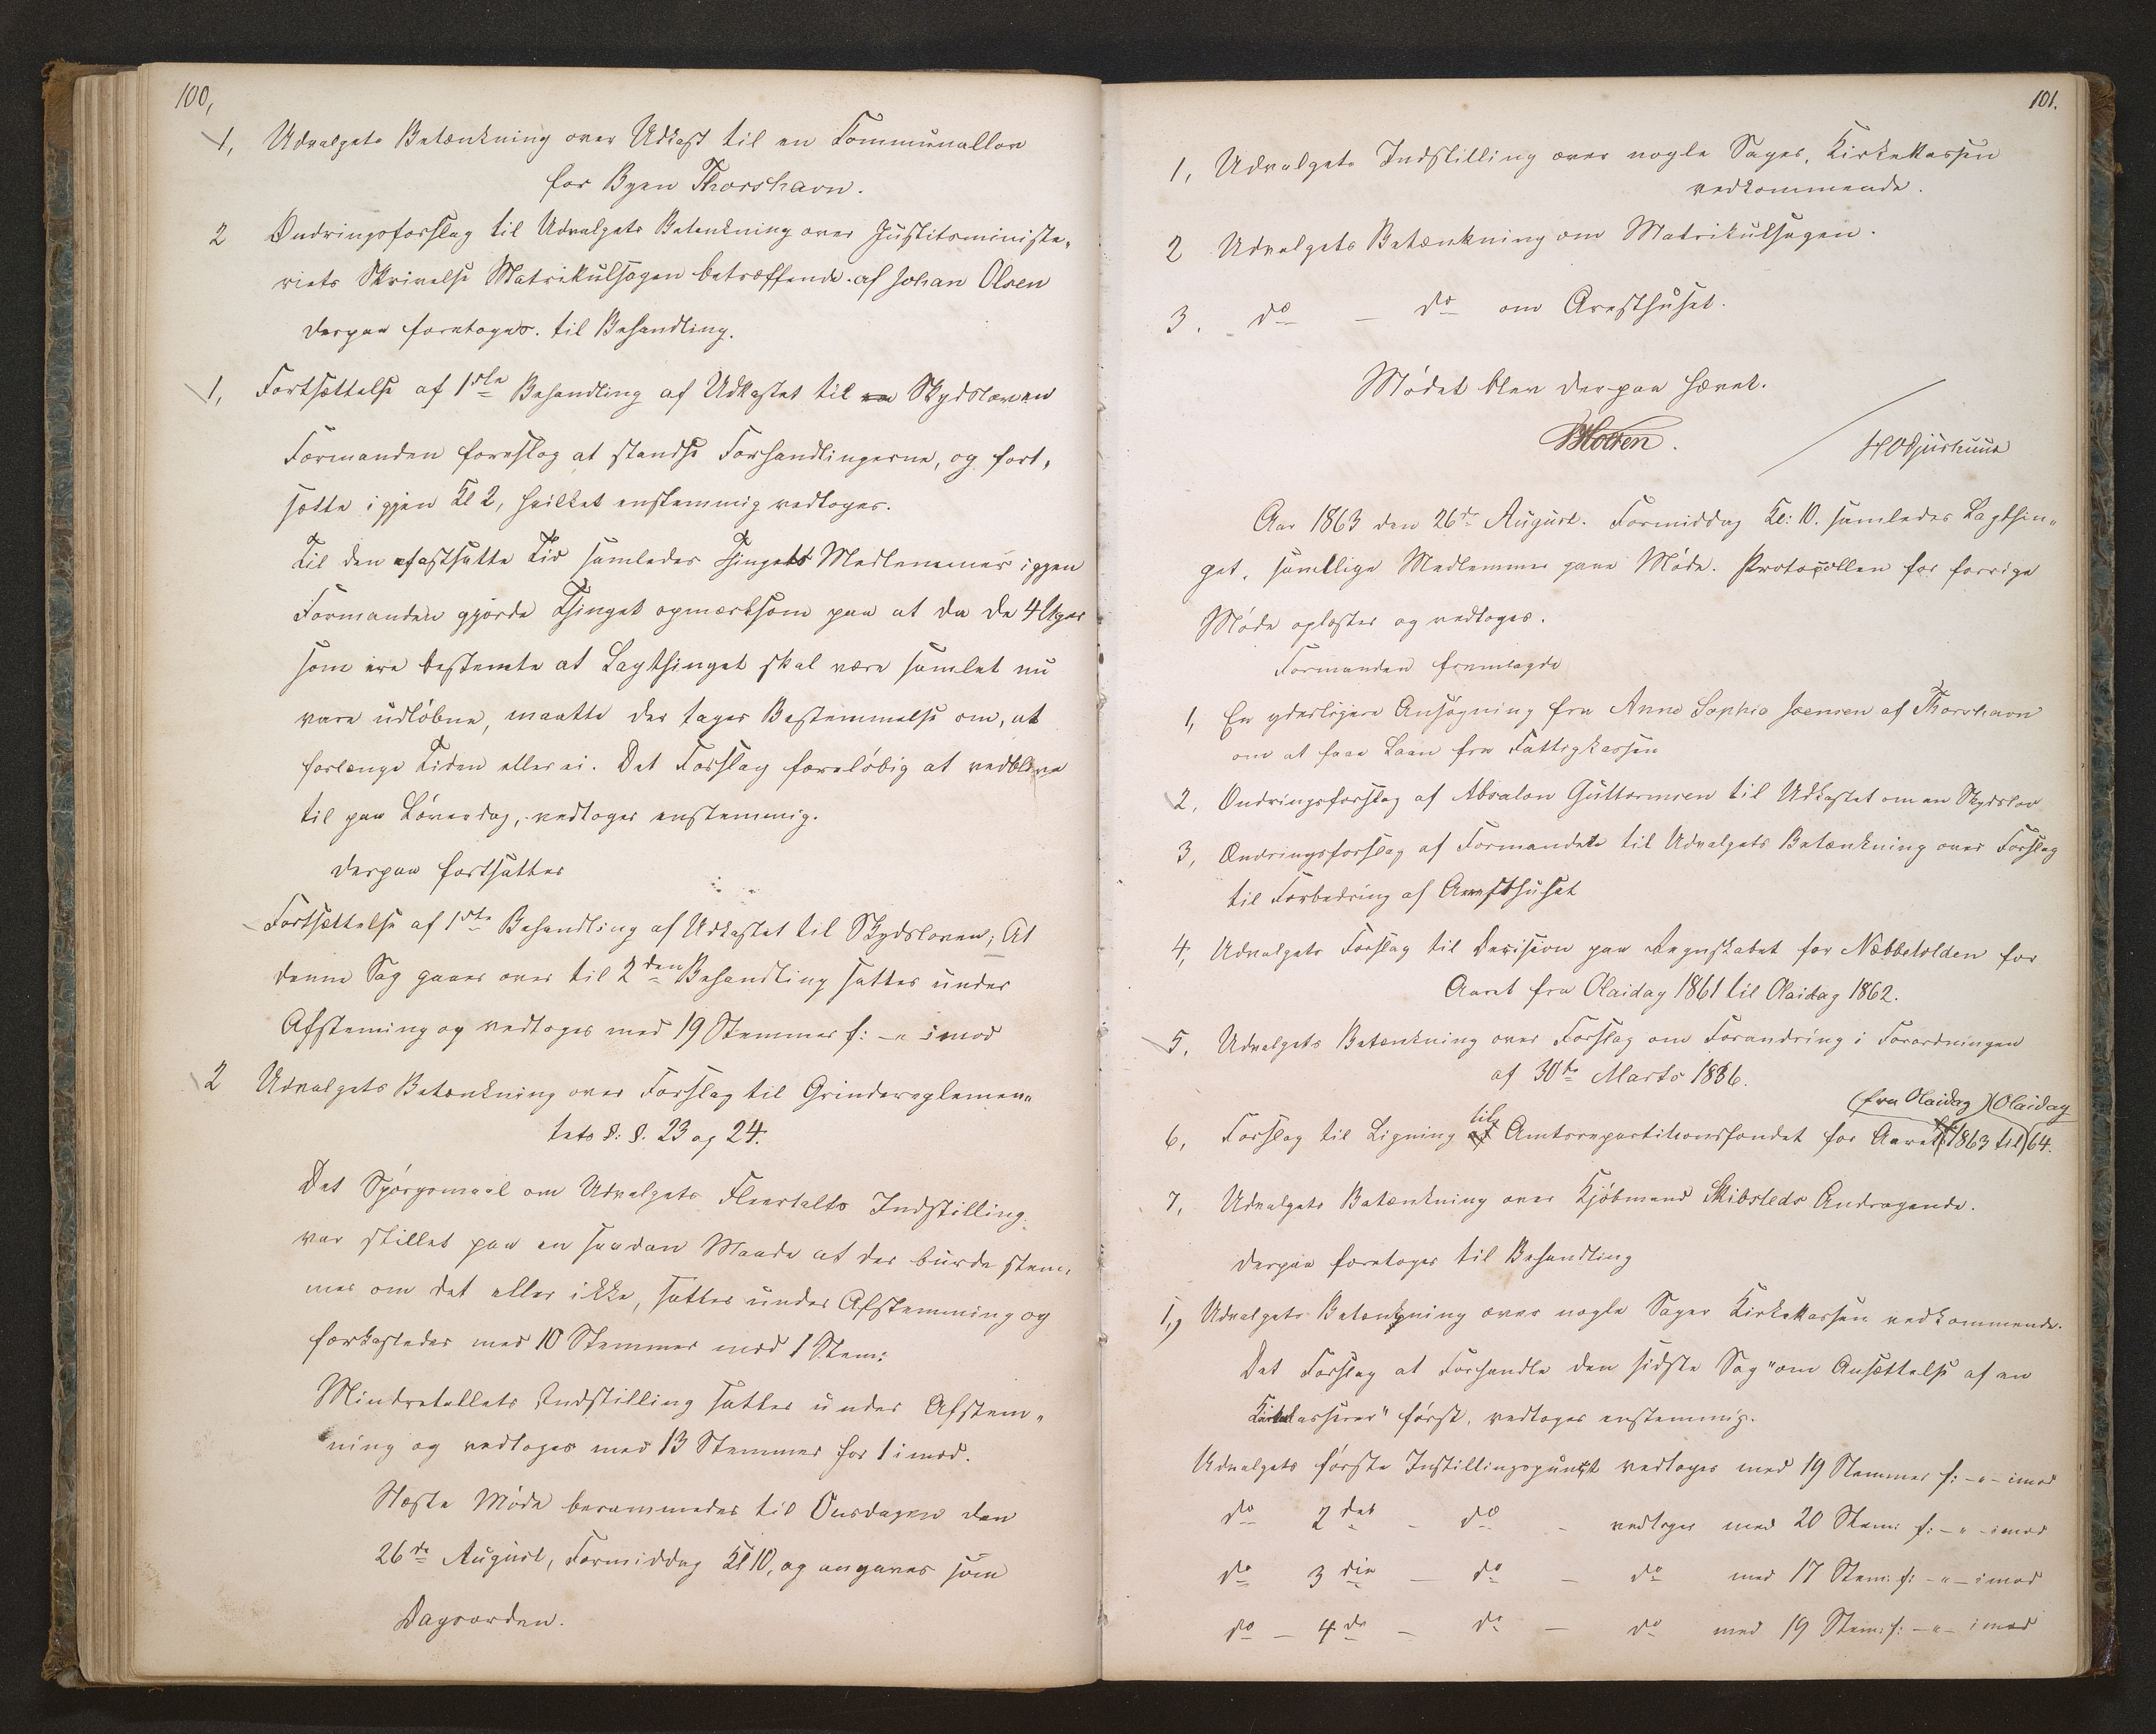 100,
1, Udvalgets Betænkning over Udkast til en Communallov
for Byen Thorshavn.
2 Ændringsforslag til Udvalgets Betænkning over Justitsministe„
riets Skrivelse Matrikulsagen betræffende. af Johan Olsen
Derpaa foretoges. til Behandling.
1, Fortsættelse af 1ste Behandling af Udkastet til Skydsloven
Formanden foreslog at standse Forhandlingerne, og fort„
sætte igjen Kl 2, hvilket enstemmig vedtoges.
Til den fastsatte Tid samledes Thingets Medlemmer igjen
Formanden gjorde Thinget opmærksom paa at da de 4 Uger
som ere bestemte at Lagthinget skal være samlet nu
vare udløbne, maatte der tages Bestemmelse om, at
forlænge Tiden eller ei. Det Forslag foreløbig at vedblive
til paa Løverdag, vedtoges enstemmig.
Derpaa fortsattes
Fortsættelse af 1ste Behandling af Udkastet til Skydsloven; At
denne Sag gaaer over til 2den Behandling sattes under
Afstemning og vedtoges med 19 Stemmer f: –„ imod
2 Udvalgets Betænkning over Forslag til Grindereglemen„
tets §: §. 23 og 24.
Det Spørgsmaal om Udvalgets Fleertalts Indstilling
var stillet paa en saadan Maade at der burde stem„
mes om det eller ikke, sattes under Afstemning og
forkastedes med 10 Stemmer mod 1 Stem:
Mindretallets Indstilling sattes under Afstem„
ning og vedtoges med 13 Stemmer for 1 imod.
Næste Møde berammedes til Onsdagen den
26de August, Formiddag Kl 10, og angaves som
Dagsorden.
101.
1, Udvalgets Indstilling over nogle Sager, Kirkekassen
vedkommende.
2 Udvalgets Betænkning om Matrikulsagen.
3. do – do om Aresthuset.
Mødet blev derpaa hævet.
HODjurhuus
Aar 1863 den 26de August. Formiddag Kl: 10. samledes Lagthin„
get, samtlige Medlemmer paa Møde. Protocollen for forrige
Møde oplæstes og vedtoges.
Formanden fremlagde
1, En yderligere Ansøgning fra Anne Sophie Joensen af Thorshavn
om at faae Laan fra Fattigkassen
2, Ændringsforslag af Absalon Guttormsen til Udkastet om en Skydslov
3, Ændringsforslag af Formanden til Udvalgets Betænkning over Forslag
til Forbedring af Aresthuset
4, Udvalgets Forslag til Decision paa Regnskabet for Næbbetolden for
Aaret fra Olaidag 1861 til Olaidag 1862.
5, Udvalgets Betænkning over Forslag om Forandring i Forordningen
af 30te Marts 1836.
(fra Olaidag) (Olaidag
6, Forslag til Ligning til Amtsrepartitionsfondet for Aaret 1863 til 64.
7, Udvalgets Betænkning over Kjøbmand Skibsteds Andragende.
Derpaa foretoges til Behandling
1, Udvalgets Betænkning over nogle Sager Kirkekassen vedkommende.
Det Forslag at Forhandle den sidste Sag "om Ansættelse af en
Kirkekasserer" først, vedtoges enstemmig.
Udvalgets første Instillingspunkt vedtoges med 19 Stemmer f: –„– imod
do 2det – do – vedtoges med 20 Stem: f: –„– imod
do 3die – do – do med 17 Stem: f: –„– imod
do – 4de – do – do med 19 Stem: f: –„– imod